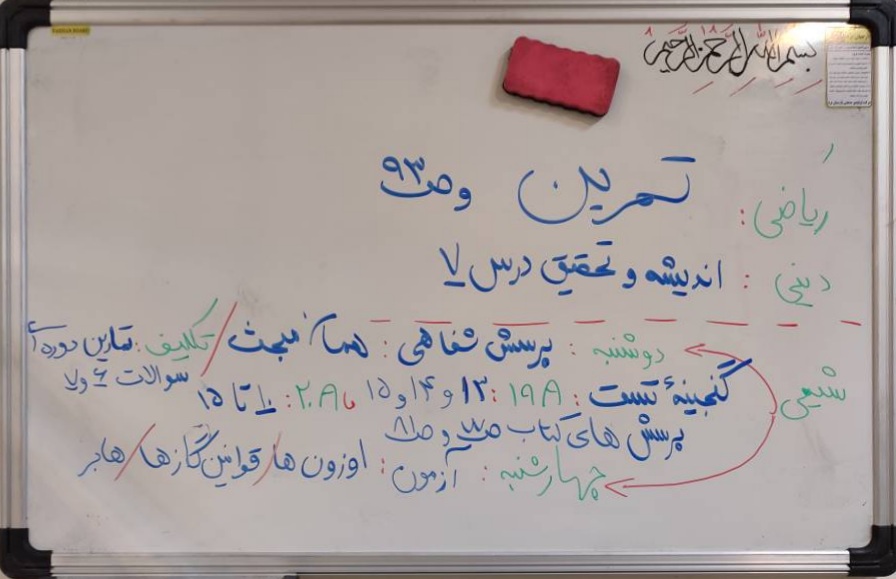 بسم الله الرحمن الرحیم
ریاضی: تمرین و ص ۹۳
دینی: اندیشه و تحقیق درس ۷
شیمی
دوشنبه: پرسش شفاهی: همان مبحث / تکلیف: تمارین دوره‌ای
سوالات ۶ و ۷
گنجینهٔ تست: ۱۹۸: ۱۳ و ۱۴ و ۱۵ تا ۲۰۸: ۱۰ تا ۱۵
پرسش های کتاب ص و ص ۸۱
چهارشنبه: آزمون: اوزون ها/قوانین گازها/هابر